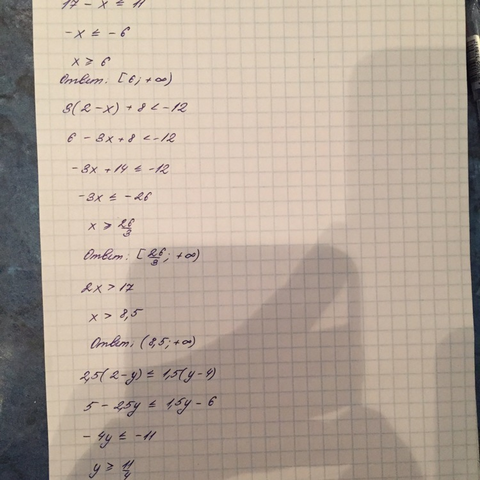 17 - x ≤ 11
-x ≤ -6
x ≥ 6
Ответ: [6; +∞)
3(2-x) + 8 < -12
6 - 3x + 8 < -12
-3x + 14 ≤ -12
-3x ≤ -26
x ≥ 26/3
Ответ: [26/3; +∞)
2x > 17
x > 8,5
Ответ: (8,5; +∞)
2,5(2-y) ≤ 1,5(y-4)
5 - 2,5y ≤ 1,5y - 6
-4y ≤ -11
y ≥ 11/4